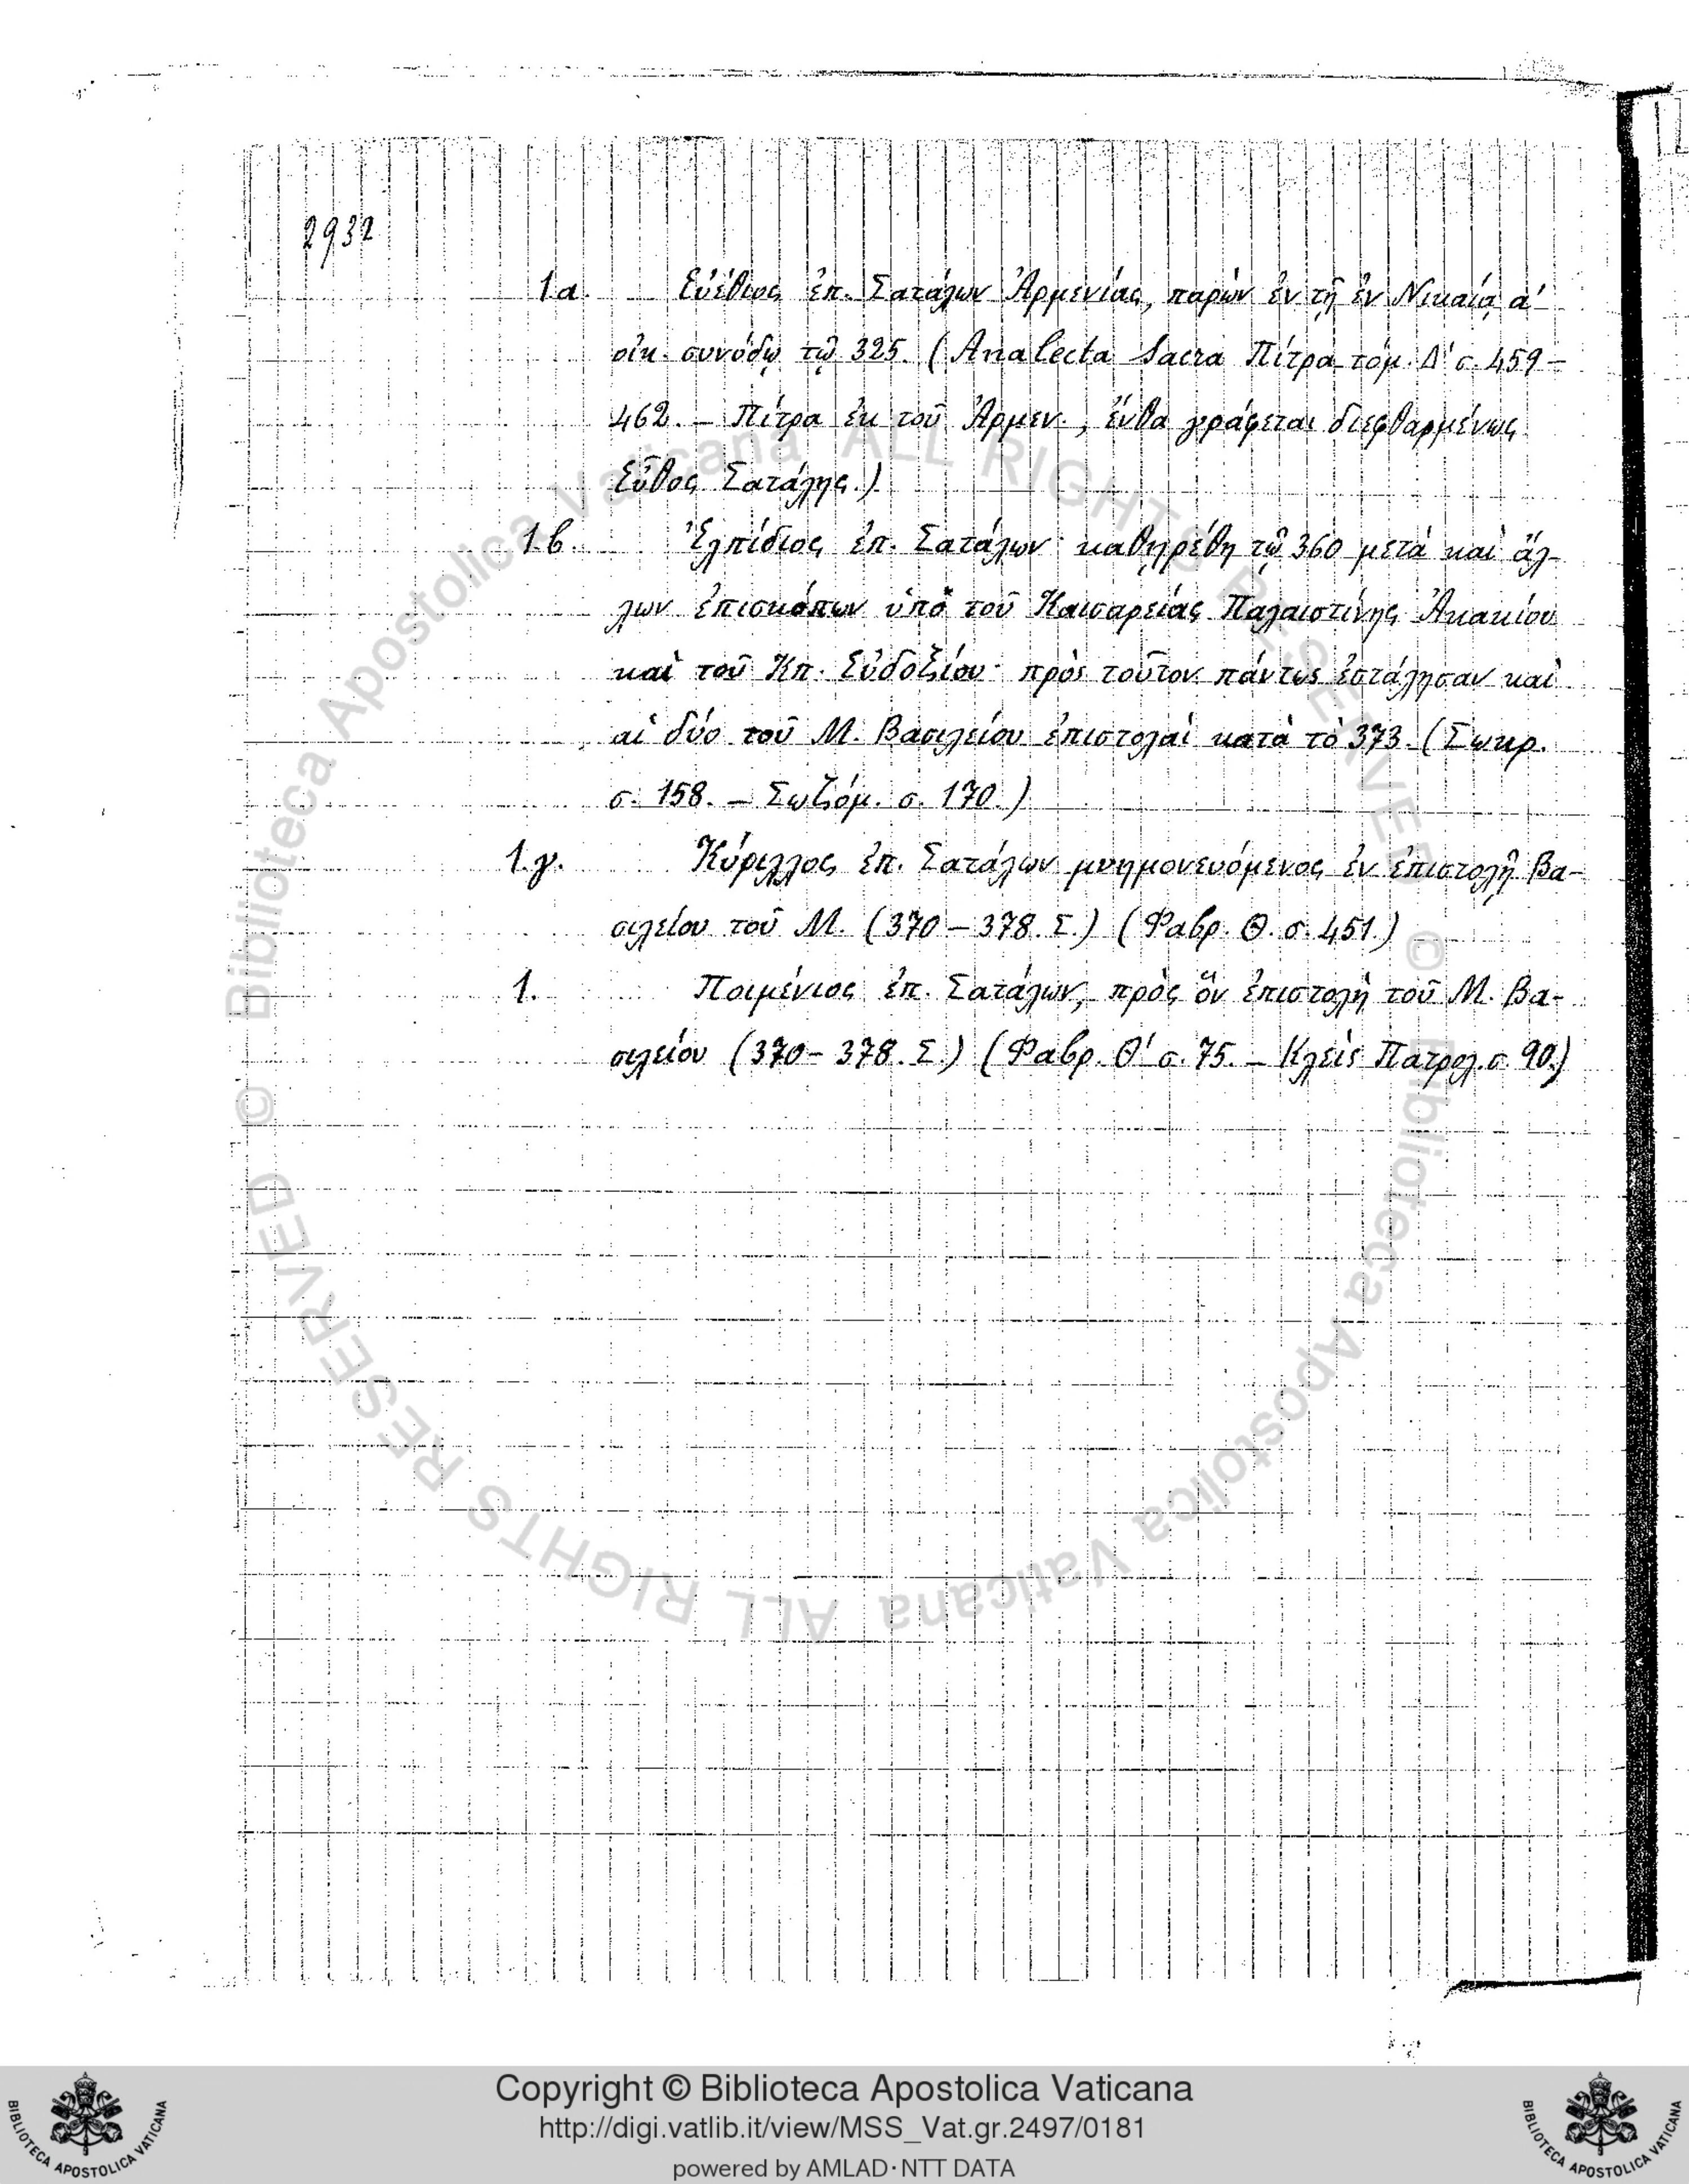 2932
1α. Εὐέθιος ἐπ. Σατάλων Ἀρμενίας, παρὼν ἐν τῇ ἐν Νικαίᾳ α΄
οἰκ. συνόδῳ τῷ 325. (Analecta Sacra Πίτρα τόμ. Δ΄ σ. 459 –
462. – Πίτρα ἐκ τοῦ Ἀρμεν., ἔνθα γράφεται διεφθαρμένως
Εὖθος Σατάλης.)
1.β. Ἐλπίδιος ἐπ. Σατάλων· καθῃρέθη τῷ 360 μετὰ καὶ ἄλ-
λων ἐπισκόπων ὑπὸ τοῦ Καισαρείας Παλαιστίνης Ἀκακίου
καὶ τοῦ Κπ. Εὐδοξίου· πρὸς τοῦτον πάντως ἐστάλησαν καὶ
αἱ δύο τοῦ Μ. Βασιλείου ἐπιστολαὶ κατὰ τὸ 373. (Σωκρ.
σ. 158. – Σωζόμ. σ. 170.)
1.γ. Κύριλλος ἐπ. Σατάλων μνημονευόμενος ἐν ἐπιστολῇ Βα-
σιλείου τοῦ Μ. (370 – 378. Σ.) (Φαβρ. Θ. σ. 451.)
1. Ποιμένιος ἐπ. Σατάλων, πρὸς ὃν ἐπιστολὴ τοῦ Μ. Βα-
σιλείου (370 – 378. Σ.) (Φαβρ. Θ΄ σ. 75. – Κλεὶς Πατρολ. σ. 90.)
© Biblioteca Apostolica Vaticana ALL RIGHTS RESERVED
© Biblioteca Apostolica Vaticana ALL RIGHTS RESERVED
Copyright © Biblioteca Apostolica Vaticana
http://digi.vatlib.it/view/MSS_Vat.gr.2497/0181
powered by AMLAD·NTT DATA
BIBLIOTECA APOSTOLICA VATICANA
BIBLIOTECA APOSTOLICA VATICANA